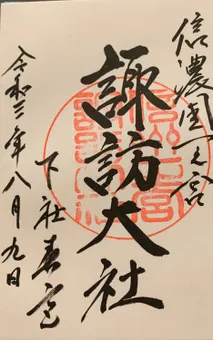 信濃國一之宮
諏訪大社
下社春宮
令和三年八月九日